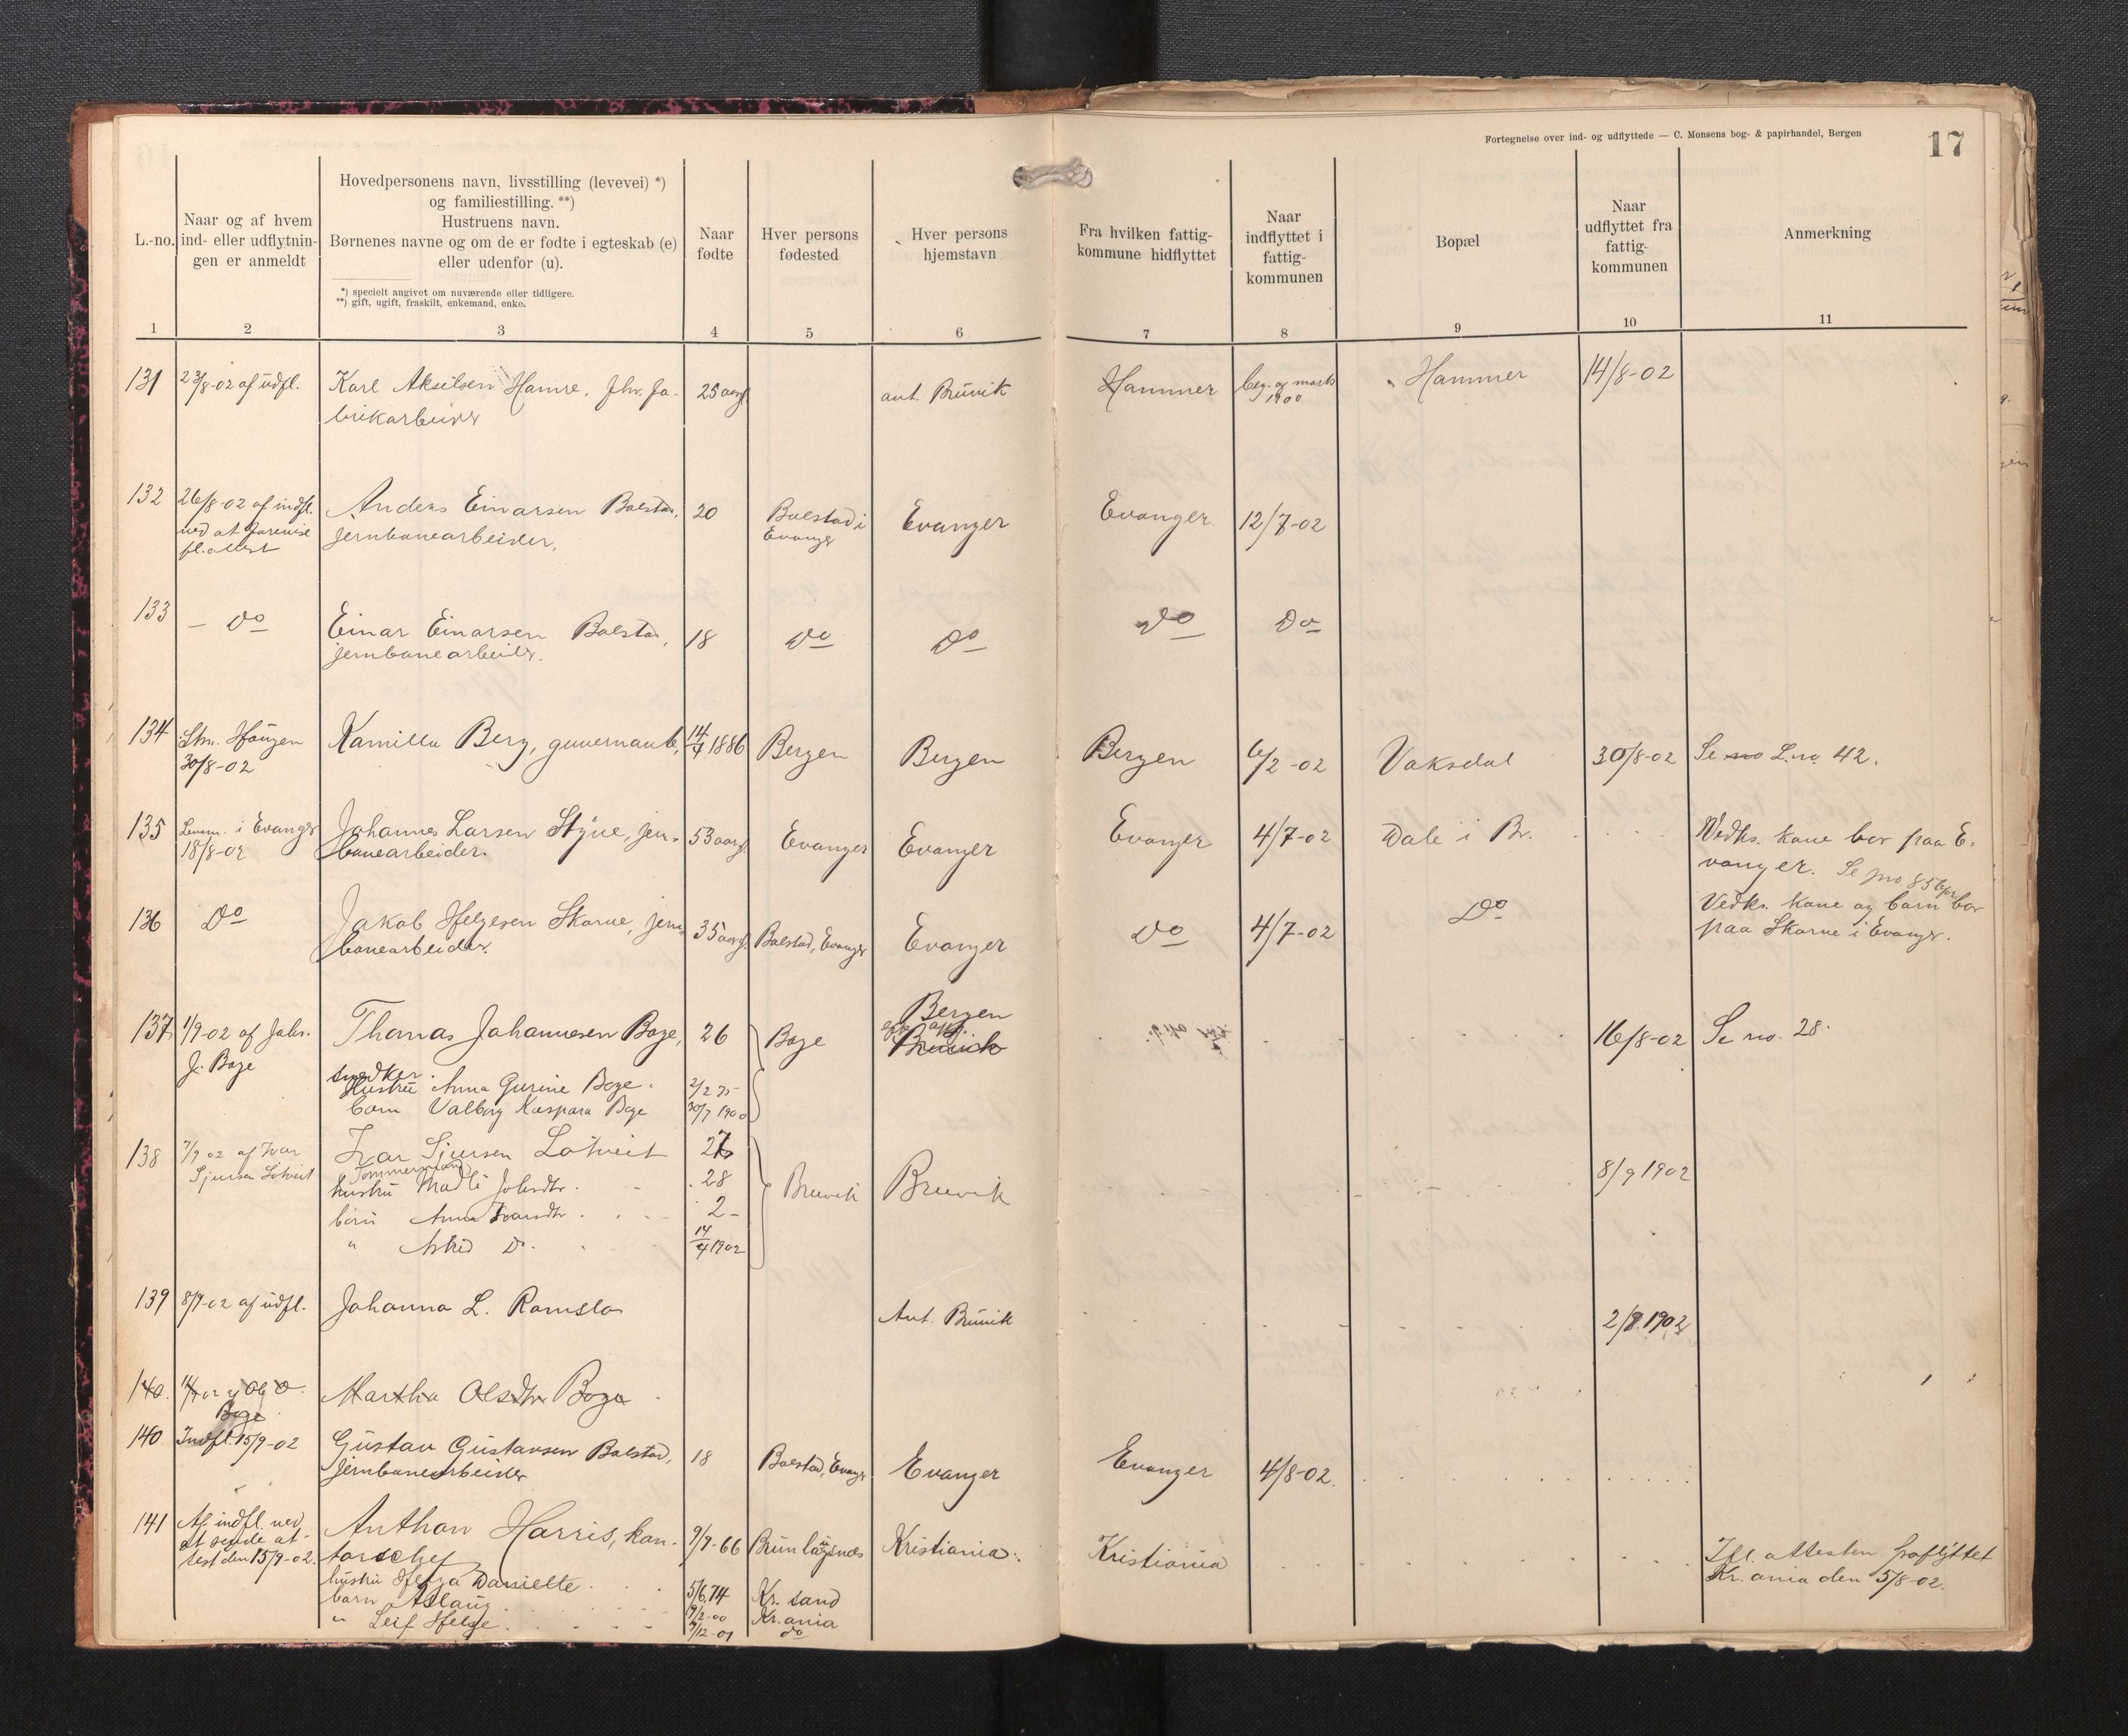 Fortegnelse over ind- og udflyttede — C. Monsens bog- & papirhandel, Bergen
17
L.-no.
Naar og af hvem
ind- eller udflytnin-
gen er anmeldt
Hovedpersonens navn, livsstilling (levevei) *)
og familiestilling. **)
Hustruens navn.
Børnenes navne og om de er fødte i egteskab (e)
eller udenfor (u).
*) specielt angivet om nuværende eller tidligere.
**) gift, ugift, fraskilt, enkemand, enke.
Naar
fødte
Hver persons
fødested
Hver persons
hjemstavn
Fra hvilken fattig-
kommune hidflyttet
Naar
indflyttet i
fattig-
kommunen
Bopæl
Naar
udflyttet fra
fattig-
kommunen
Anmerkning
1 2 3 4 5 6 7 8 9 10 11
131 23/8-02 af udfl. Karl Akselsen Hamre, fhv. fa- 25 aar ant. Bruvik Hammer beg. af marts Hammer 14/8-02
brikarbeider 1900
132 26/8-02 af indfl. Anders Einarsen Bolstad, 20 Bolstad i Evanger Evanger 12/7-02
ved at forevise jernbanearbeider. Evanger
fl. attest
133 — Do Einar Einarsen Bolstad, 18 Do Do Do Do
jernbanearbeider.
134 Lhn. Hougen Kamilla Berg, guvernante, 14/7 1886 Bergen Bergen Bergen 6/2-02 Vaksdal 30/8-02 Se no L.no. 42.
30/8-02
135 Lensm. i Evanger Johannes Larsen Styve, jern- 53 aar Evanger Evanger Evanger 4/7-02 Dale i Br. Vedk. kone bor paa E-
18/8-02 banearbeider. vanger. Se
136 Do Jakob Helgesen Skorve, jern- 35 aar Bolstad, Evanger Evanger Do 4/7-02 Do Vedk. kone og barn bor
banearbeider. paa Skorve i Evanger.
137 1/9-02 af Johs. Thomas Johannesen Boge, 26 Boge Bergen
Bruvik 16/8-02 Se no. 28.
J. Boge snedker.
Hustru Anna Gurine Boge. 2/2 75
barn Valborg Kaspara Boge 30/7 1900
138 7/9 02 af Ivar Ivar Sjursen Lotveit 27 Bruvik Bruvik 8/9 1902
Sjursen Lotveit Tømmermand
hustru Madli Johsdtr. 28
børn Anna Ivarsdtr. 2
" Astrid Do. 14/4 1902
139 8/9-02 af udfl. Johanna L. Romslo Ant. Bruvik 2/8.1902
140. Martha Olsdtr Boge
Boge
140 Indfl. 15/9-02 Gustav Gustavsen Bolstad, 18 Bolstad, Evanger Evanger Evanger 4/8-02.
jernbanearbeider
141 Af indfl. ved Anthon Harris, kon- 9/9-66 Brunlagnæs Kristiania Kristiania Ifl. attesten fraflyttet
at sende at- torchef Kr.ania den 5/8-02.
test den 15/9-02.
hustru Helga Danielle 5/6.74 Kr. sand
barn Aslaug 9/2-00 Kr.ania
" Leif Helge. 7/12-01 do